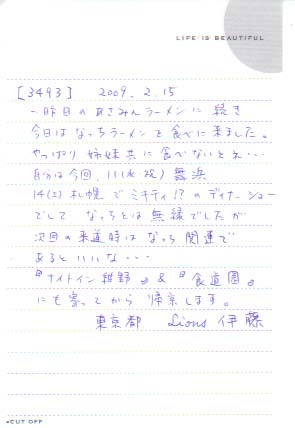 LIFE IS BEAUTIFUL
[3493] 2009.2.15
一昨日のあさみんラーメンに続き
今日はなっちラーメンを食べに来ました。
やっぱり姉妹共に食べないとネ・・・
自分は今回、11(水・祝)舞浜
14(土)札幌でミキティ!?のディナーショー
でして なっちとは無縁でしたが
次回の来道時はなっち関連で
あるといいな・・・
『ナイトイン紺野』&『食道園』
にも寄ってから帰京します。
東京都 Lions 伊藤
CUT OFF